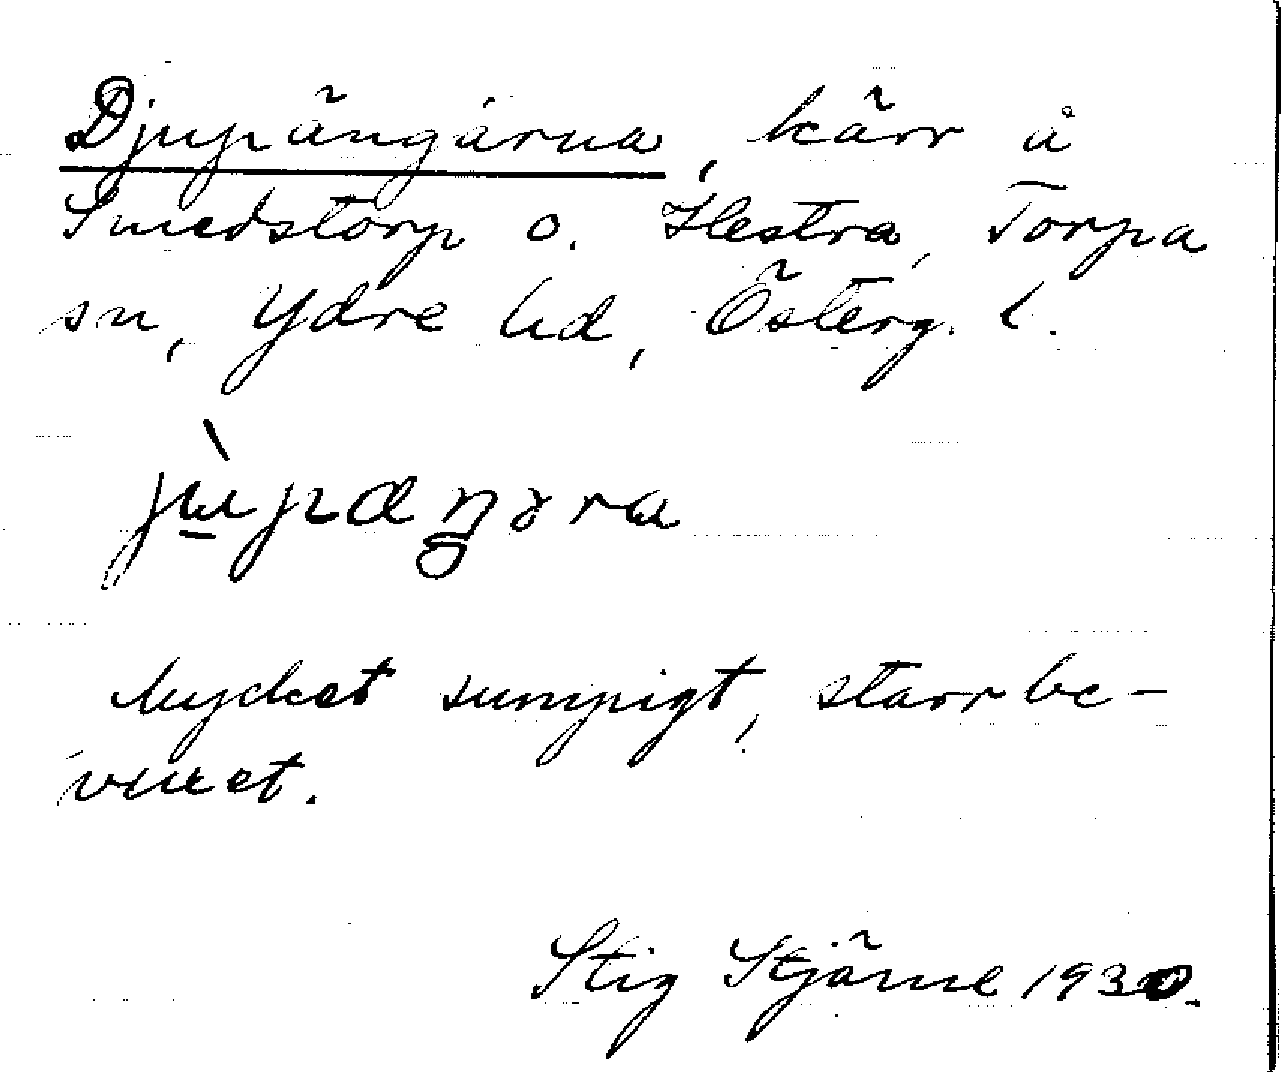 Djupängarna, kärr å
Smedstorp o. Hestra, Torpa
sn, Ydre hd, Österg. l.
jùpæŋɜra
Mycket sumpigt, starrbe-
vuxet.
Stig Stjärne 1930.